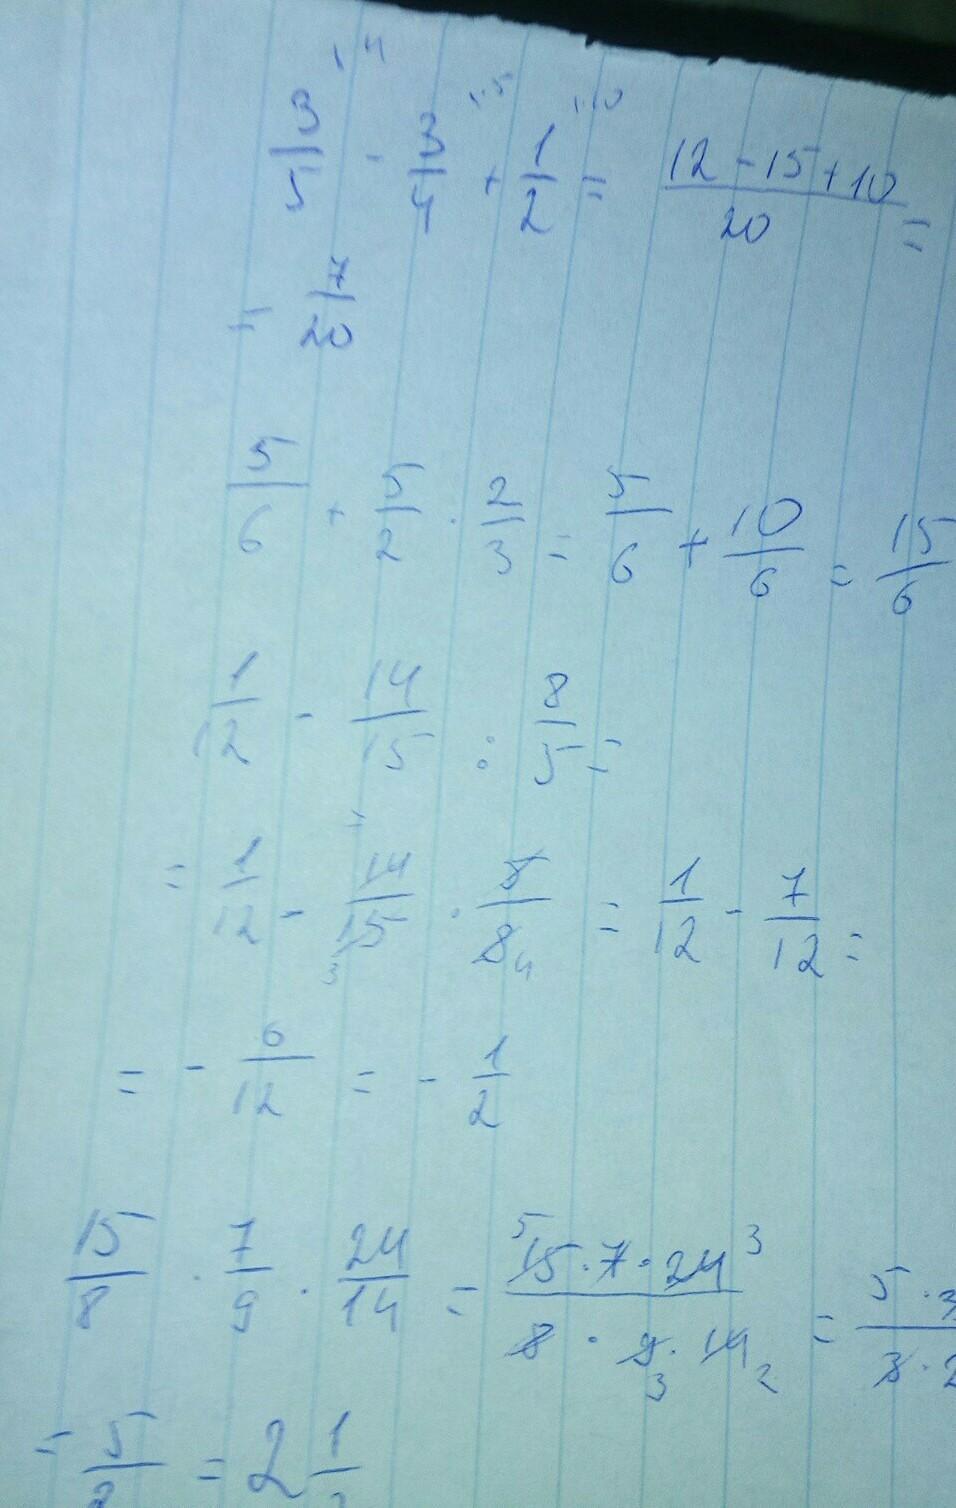 3/5 - 3/4 + 1/2 = (12 - 15 + 10)/20 =
= 7/20
5/6 + 5/2 · 2/3 = 5/6 + 10/6 = 15/6
1/12 - 14/15 : 8/5 =
= 1/12 - 14/15 · 5/8 = 1/12 - 7/12 =
= - 6/12 = - 1/2
15/8 · 7/9 · 24/14 = (15 · 7 · 24)/(8 · 9 · 14) = (5 · 3)/(3 · 2)
= 5/2 = 2 1/2